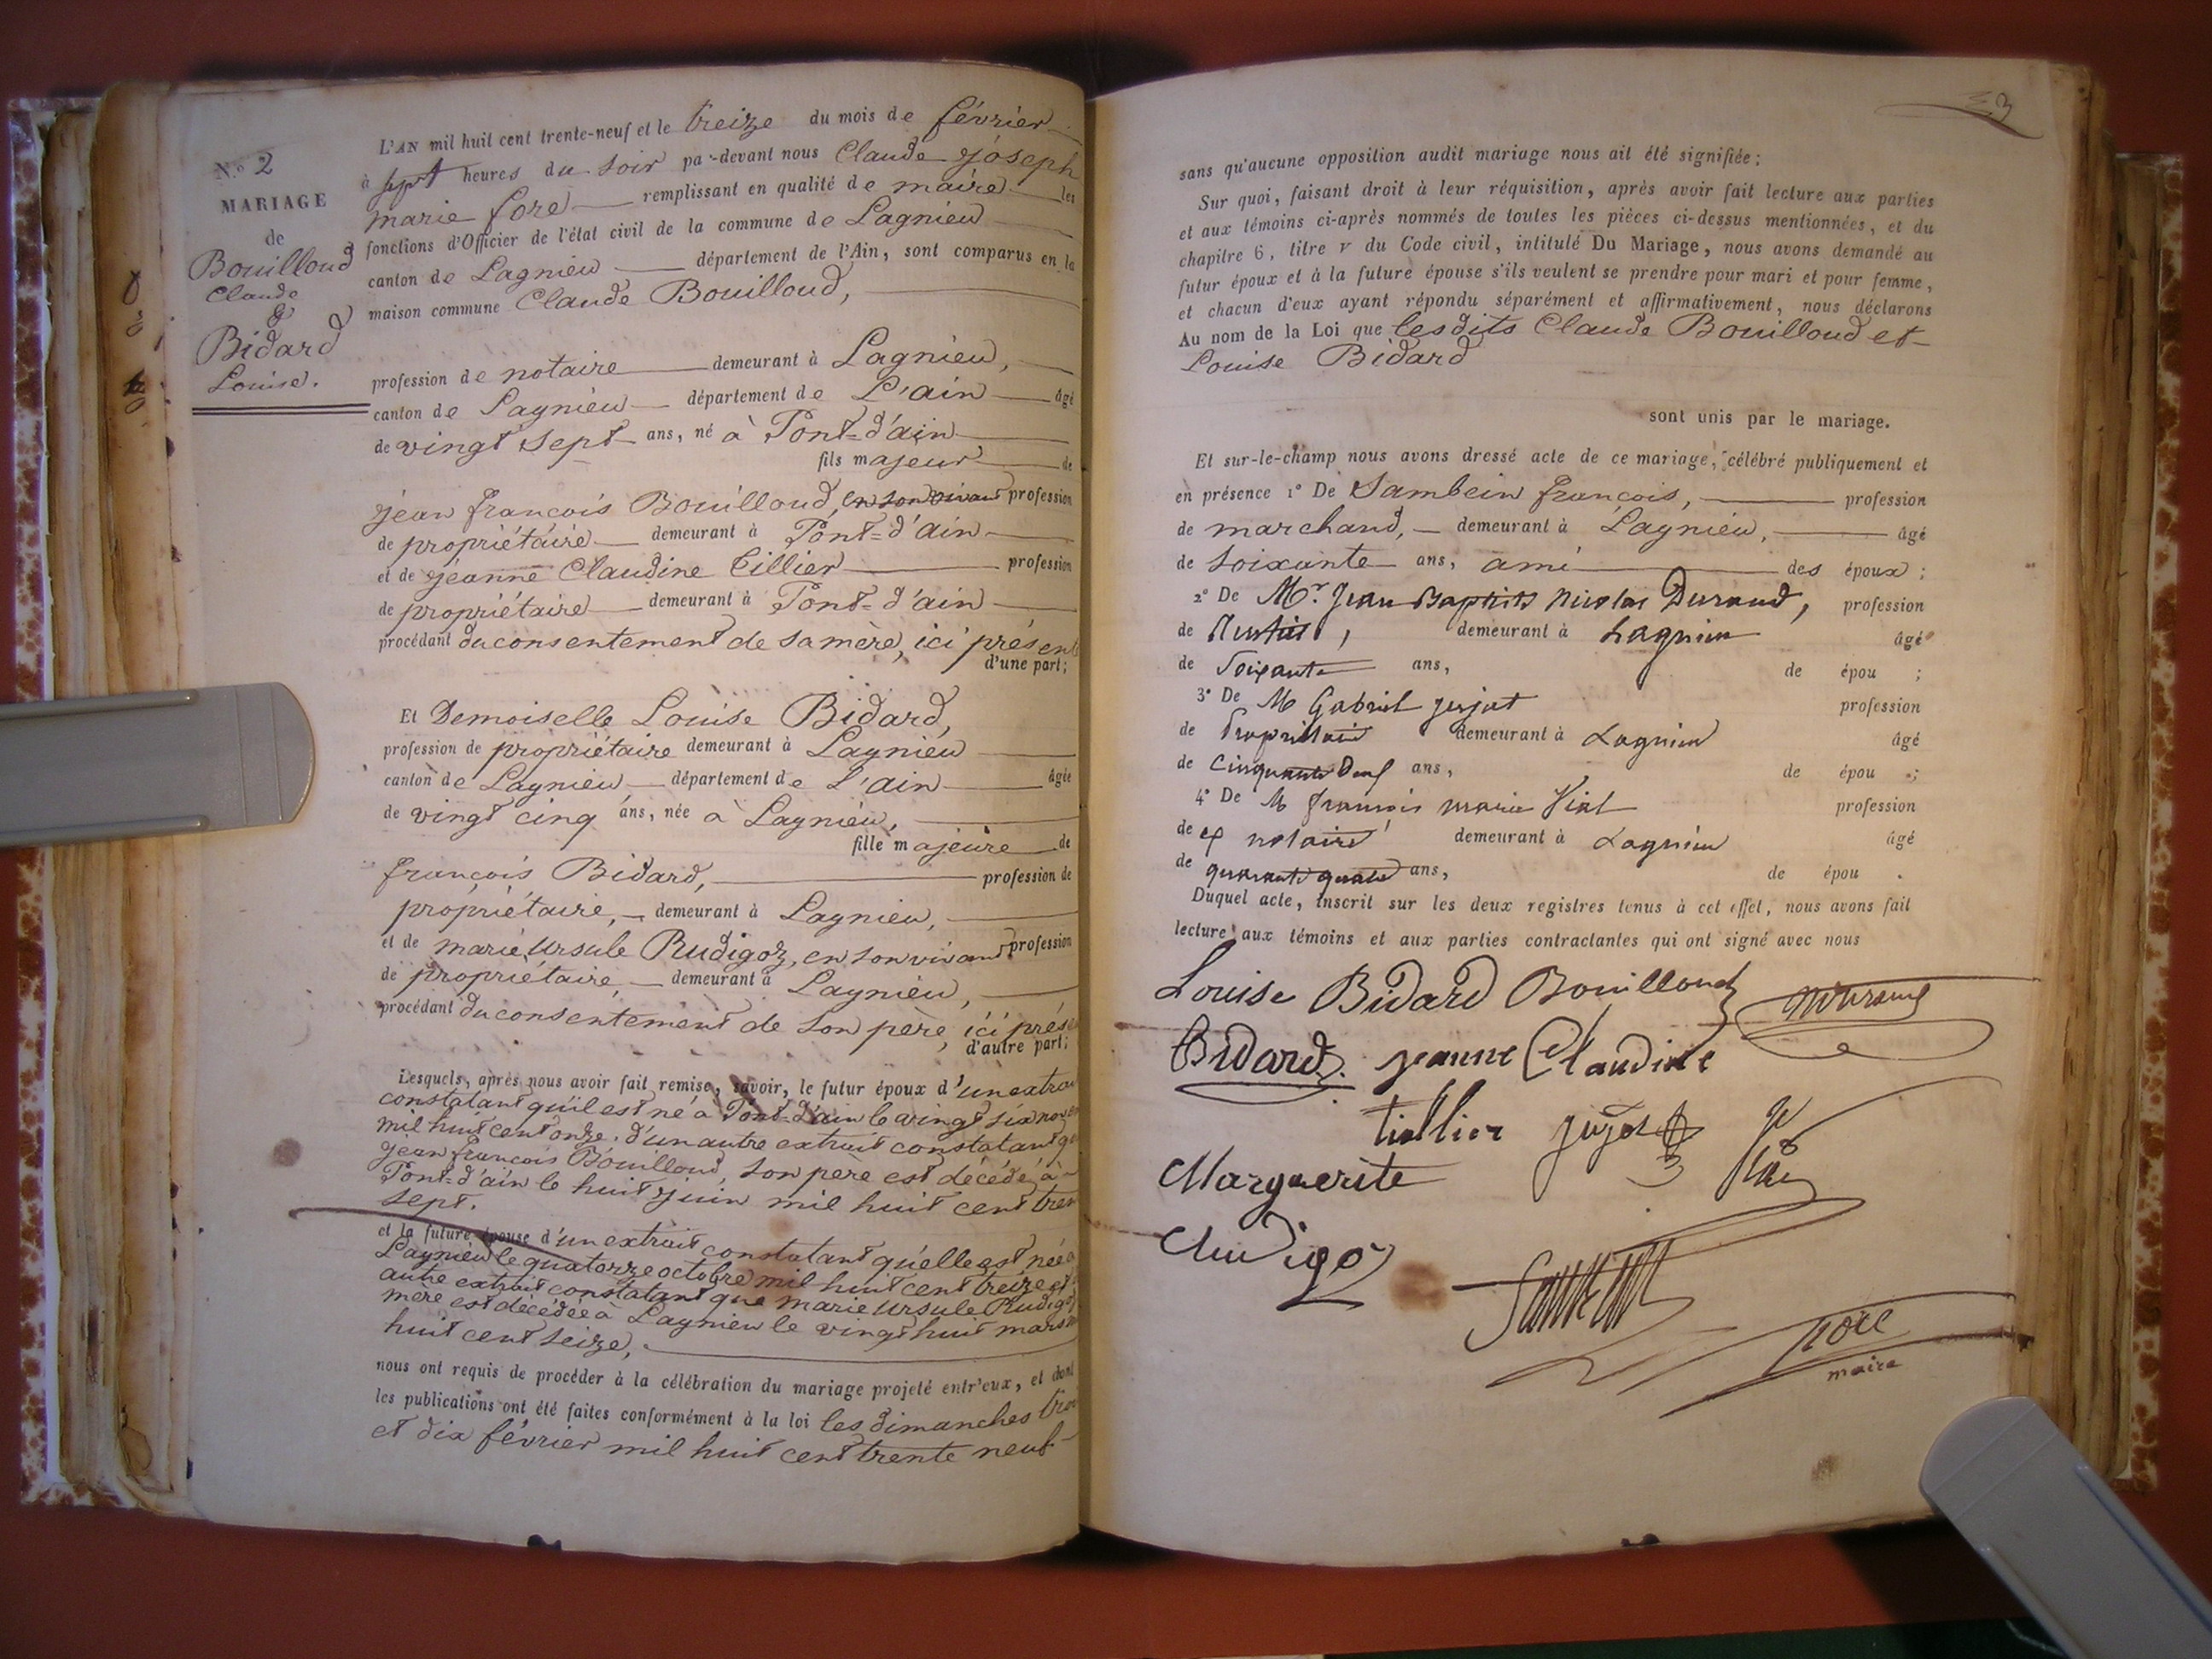 N.º 2
MARIAGE
de
Bouilloud
Claude
&
Bidard
Louise.
L'AN mil huit cent trente-neuf et le treize du mois de février
à sept heures du soir par-devant nous Claude joseph
marie fore remplissant en qualité de maire les
fonctions d'Officier de l'état civil de la commune de Lagnieu
canton de Lagnieu département de l'Ain, sont comparus en la
maison commune Claude Bouilloud,
profession de notaire demeurant à Lagnieu,
canton de Lagnieu département de L'ain âgé
de vingt sept ans, né à Pont-d'ain
fils majeur de
jean françois Bouilloud, en son vivant profession
de propriétaire demeurant à Pont-d'ain
et de jeanne Claudine Tillier profession
de propriétaire demeurant à Pont-d'ain
procédant du consentement de sa mère, ici présente
d'une part;
Et Demoiselle Louise Bidard,
profession de propriétaire demeurant à Lagnieu
canton de Lagnieu département de L'ain âgée
de vingt cinq ans, née à Lagnieu,
fille majeure de
françois Bidard, profession de
propriétaire, demeurant à Lagnieu,
et de marie ursule Rudigoz, en son vivant profession
de propriétaire, demeurant à Lagnieu,
procédant du consentement de son père, ici prése
d'autre part;
Lesquels, après nous avoir fait remise, savoir, le futur époux d'un extrait
constatant qu'il est né à Pont-d'ain le vingt six nov
mil huit cent onze. d'un autre extrait constatant que
jean françois Bouilloud, son père est décédé à
Pont-d'ain le huit juin mil huit cent tren
sept.
et la future épouse d'un extrait constatant qu'elle est née à
Lagnieu le quatorze octobre mil huit cent treize et
autre extrait constatant que marie ursule Rudigoz
mère est décédée à Lagnieu le vingt huit mars
huit cent seize,
nous ont requis de procéder à la célébration du mariage projeté entr'eux, et dont
les publications ont été faites conformément à la loi les dimanches trois
et dix février mil huit cent trente neuf
sans qu'aucune opposition audit mariage nous ait été signifiée;
Sur quoi, faisant droit à leur réquisition, après avoir fait lecture aux parties
et aux témoins ci-après nommés de toutes les pièces ci-dessus mentionnées, et du
chapitre 6, titre v du Code civil, intitulé Du Mariage, nous avons demandé au
futur époux et à la future épouse s'ils veulent se prendre pour mari et pour femme,
et chacun d'eux ayant répondu séparément et affirmativement, nous déclarons
Au nom de la Loi que lesdits Claude Bouilloud et
Louise Bidard
sont unis par le mariage.
Et sur-le-champ nous avons dressé acte de ce mariage, célébré publiquement et
en présence 1º De Sambein françois, profession
de marchand, demeurant à Lagnieu, âgé
de soixante ans, ami des époux;
2º De Mr. Jean Baptiste Nicolas Durand, profession
de demeurant à Lagnieu âgé
de Soixante ans, de épou ;
3º De M Gabriel profession
de Propriétaire demeurant à Lagnieu âgé
de Cinquante Deux ans, de épou ;
4º De M françois marie Vial profession
de ex notaire demeurant à Lagnieu âgé
de quarante quatre ans, de épou .
Duquel acte, inscrit sur les deux registres tenus à cet effet, nous avons fait
lecture aux témoins et aux parties contractantes qui ont signé avec nous
Louise Bidard Bouilloud
Bidard jeanne Claudine
tillier
Marguerite
fore
maire